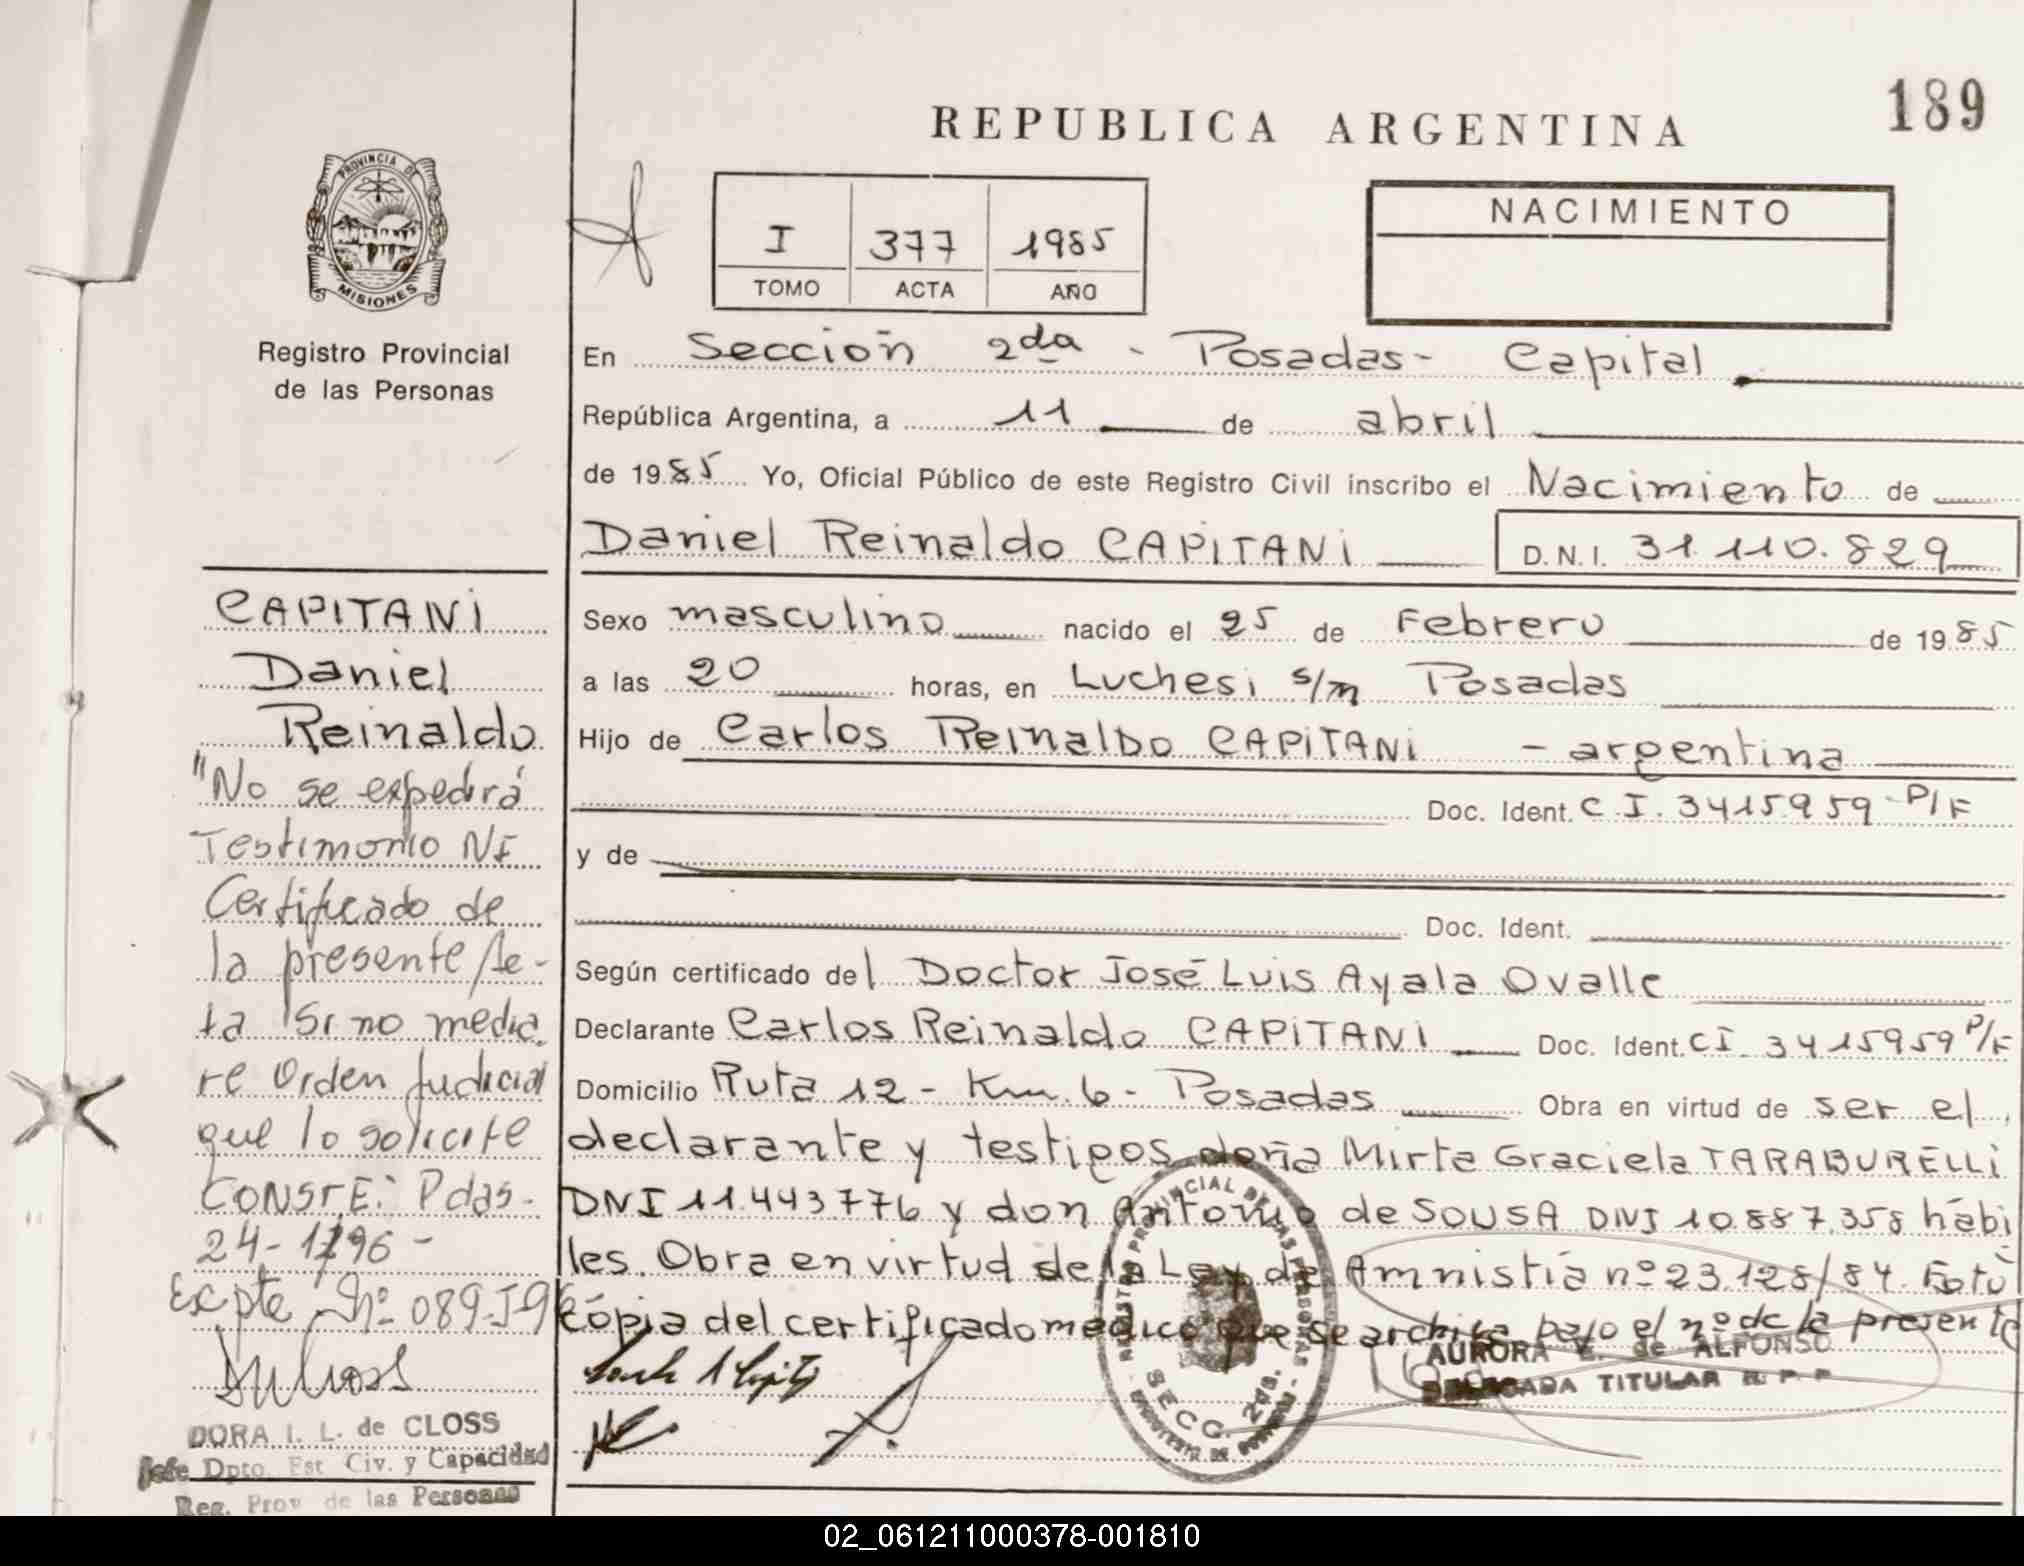 189
REPUBLICA ARGENTINA
PROVINCIA DE
MISIONES
Registro Provincial
de las Personas
I 377 1985
TOMO ACTA AÑO
NACIMIENTO
En Sección 2da - Posadas - Capital
República Argentina, a 11 de abril
de 1985 Yo, Oficial Público de este Registro Civil inscribo el Nacimiento de
Daniel Reinaldo CAPITANI D.N.I. 31.110.829
Sexo masculino nacido el 25 de Febrero de 1985
a las 20 horas, en Luchesi s/m Posadas
Hijo de Carlos Reinaldo CAPITANI - argentina
Doc. Ident. C.I. 3415959 P/F
y de
Doc. Ident.
Según certificado del Doctor José Luis Ayala Ovalle
Declarante Carlos Reinaldo CAPITANI Doc. Ident. CI. 3415959 P/F
Domicilio Ruta 12 - Km. 6 - Posadas Obra en virtud de ser el
declarante y testigos doña Mirta Graciela TARABURELLI
DNI 11.443.776 y don Antonio de SOUSA DNI 10.887.358 hábi
les. Obra en virtud de la Ley de Amnistía nº 23.128/84. Foto
cópia del certificado medico que se archiva bajo el nº de la presente
AURORA E. de ALFONSO
DELEGADA TITULAR R. P. P.
REGISTRO PROVINCIAL DE LAS PERSONAS
SECC. 2da.
CAPITANI
Daniel
Reinaldo
"No se expedirá
Testimonio NI
Certificado de
la presente Ac-
ta si no media
re Orden Judicial
que lo solicite
CONSTE: Pdas.
24-1-96-
Expte Nº 089-I-96
DORA I. L. de CLOSS
Jefe Dpto. Est. Civ. y Capacidad
Reg. Prov. de las Personas
02_061211000378-001810